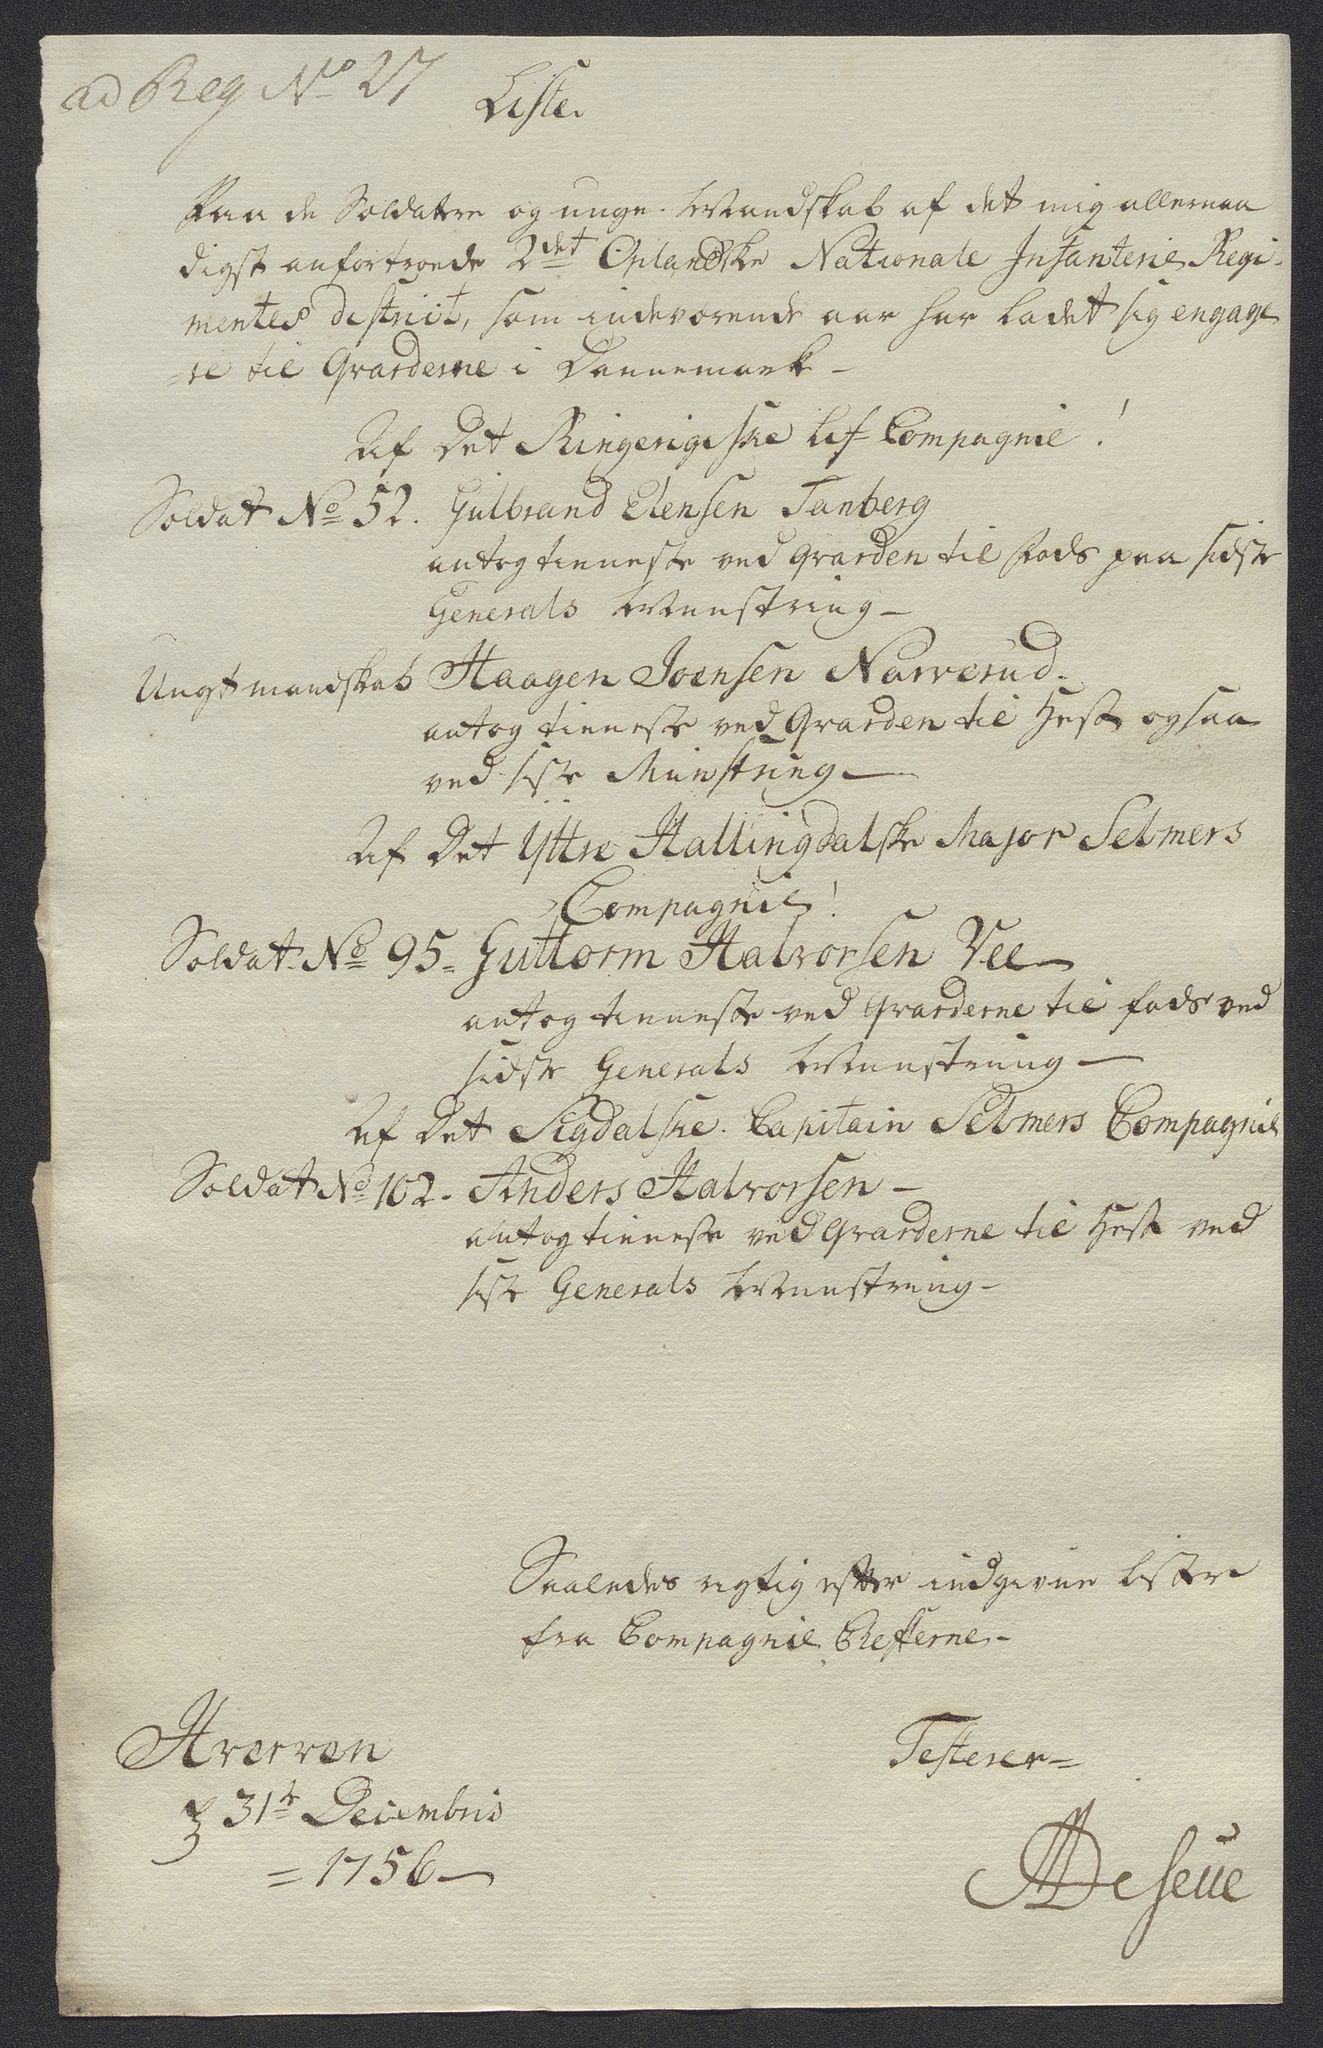 ad Reg No 27
Liste
Paa de Soldater og unge Mandskab af det mig allernaa
digst anfortroede 2det Oplandske Nationale Infanterie Regi-
mentes district, som indeværende aar har ladet sig engage
=re til Gvarderne i Dannemark -
Af Det Ringerigiske Lif Compagnie!
Soldat No 52. Gulbrand Elensen Tanberg
antog tienneste ved Gvarden til Fods paa sidste
Generals Munstring -
Ungt mandskab Haagen Joensen Narverud.
antog tienneste ved Gvarden til Hest ogsaa
ved siste Munstring -
Af Det Yttre Hallingdalske Major Selmers
Compagnie!
Soldat No 95 = Guttorm Halvorsen Vee -
antog tienneste ved Gvarderne til fods ved
sidste Generals Munstring -
Af Det Sigdalske Capitain Selmers Compagnie
Soldat No 102. Anders Halvorsen -
antog tienneste ved Gvarderne til Hest ved
siste Generals Munstring -
Saaledes rigtig efter indgivne Lister
fra Compagnie Chefferne -
Hverven
31te Decembris
= 1756 -
Testerer =
De Seue